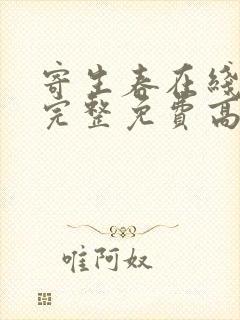 寄生春在綫
完整免費高
唯阿奴